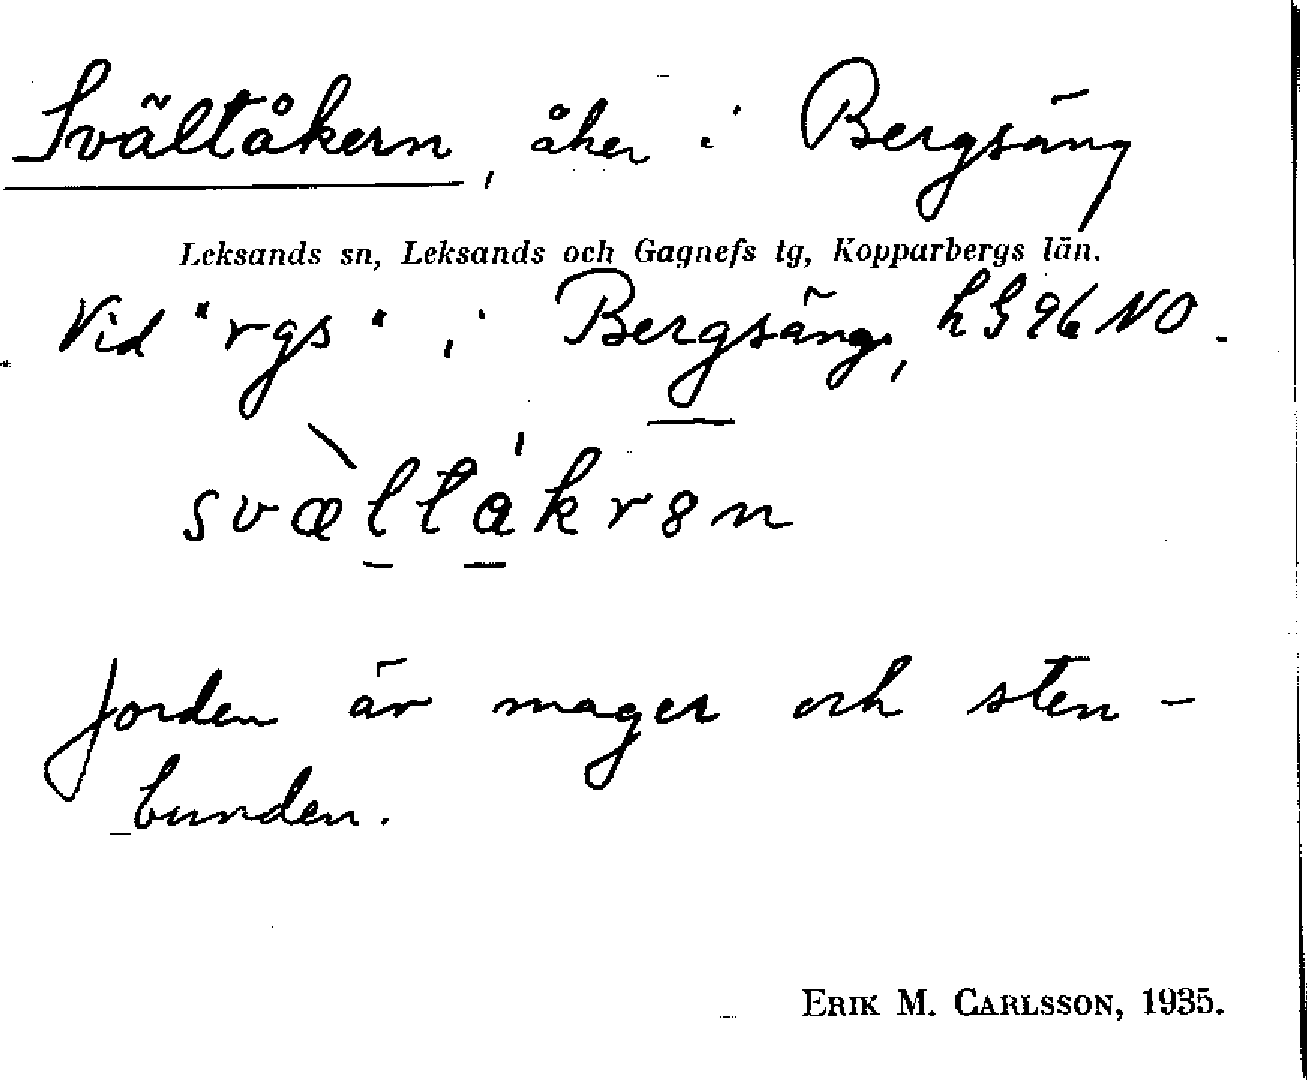 Svältåkern, åker i Bergsäng
Leksands sn, Leksands och Gagnefs tg, Kopparbergs län.
Vid "rgs" i Bergsäng, hS 96 NO.
svæltåkr8n
Jorden är mager och sten-
bunden.
ERIK M. CARLSSON, 1935.